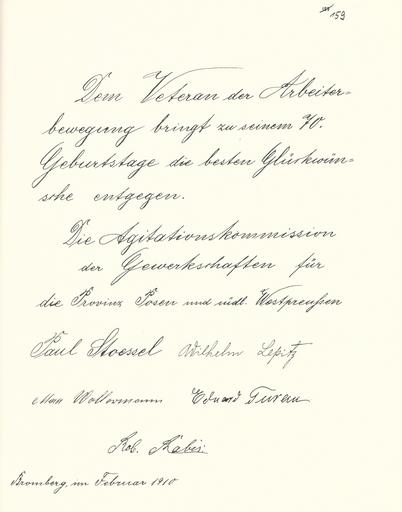 159
Dem Veteran der Arbeiter-
bewegung bringt zu seinem 70.
Geburtstage die besten Glückwün-
sche entgegen.
Die Agitationskommission
der Gewerkschaften für
die Provinz Posen und südl. Westpreußen
Paul Stoessel Wilhelm
Max Eduard
Rob.
Bromberg, im Februar 1910